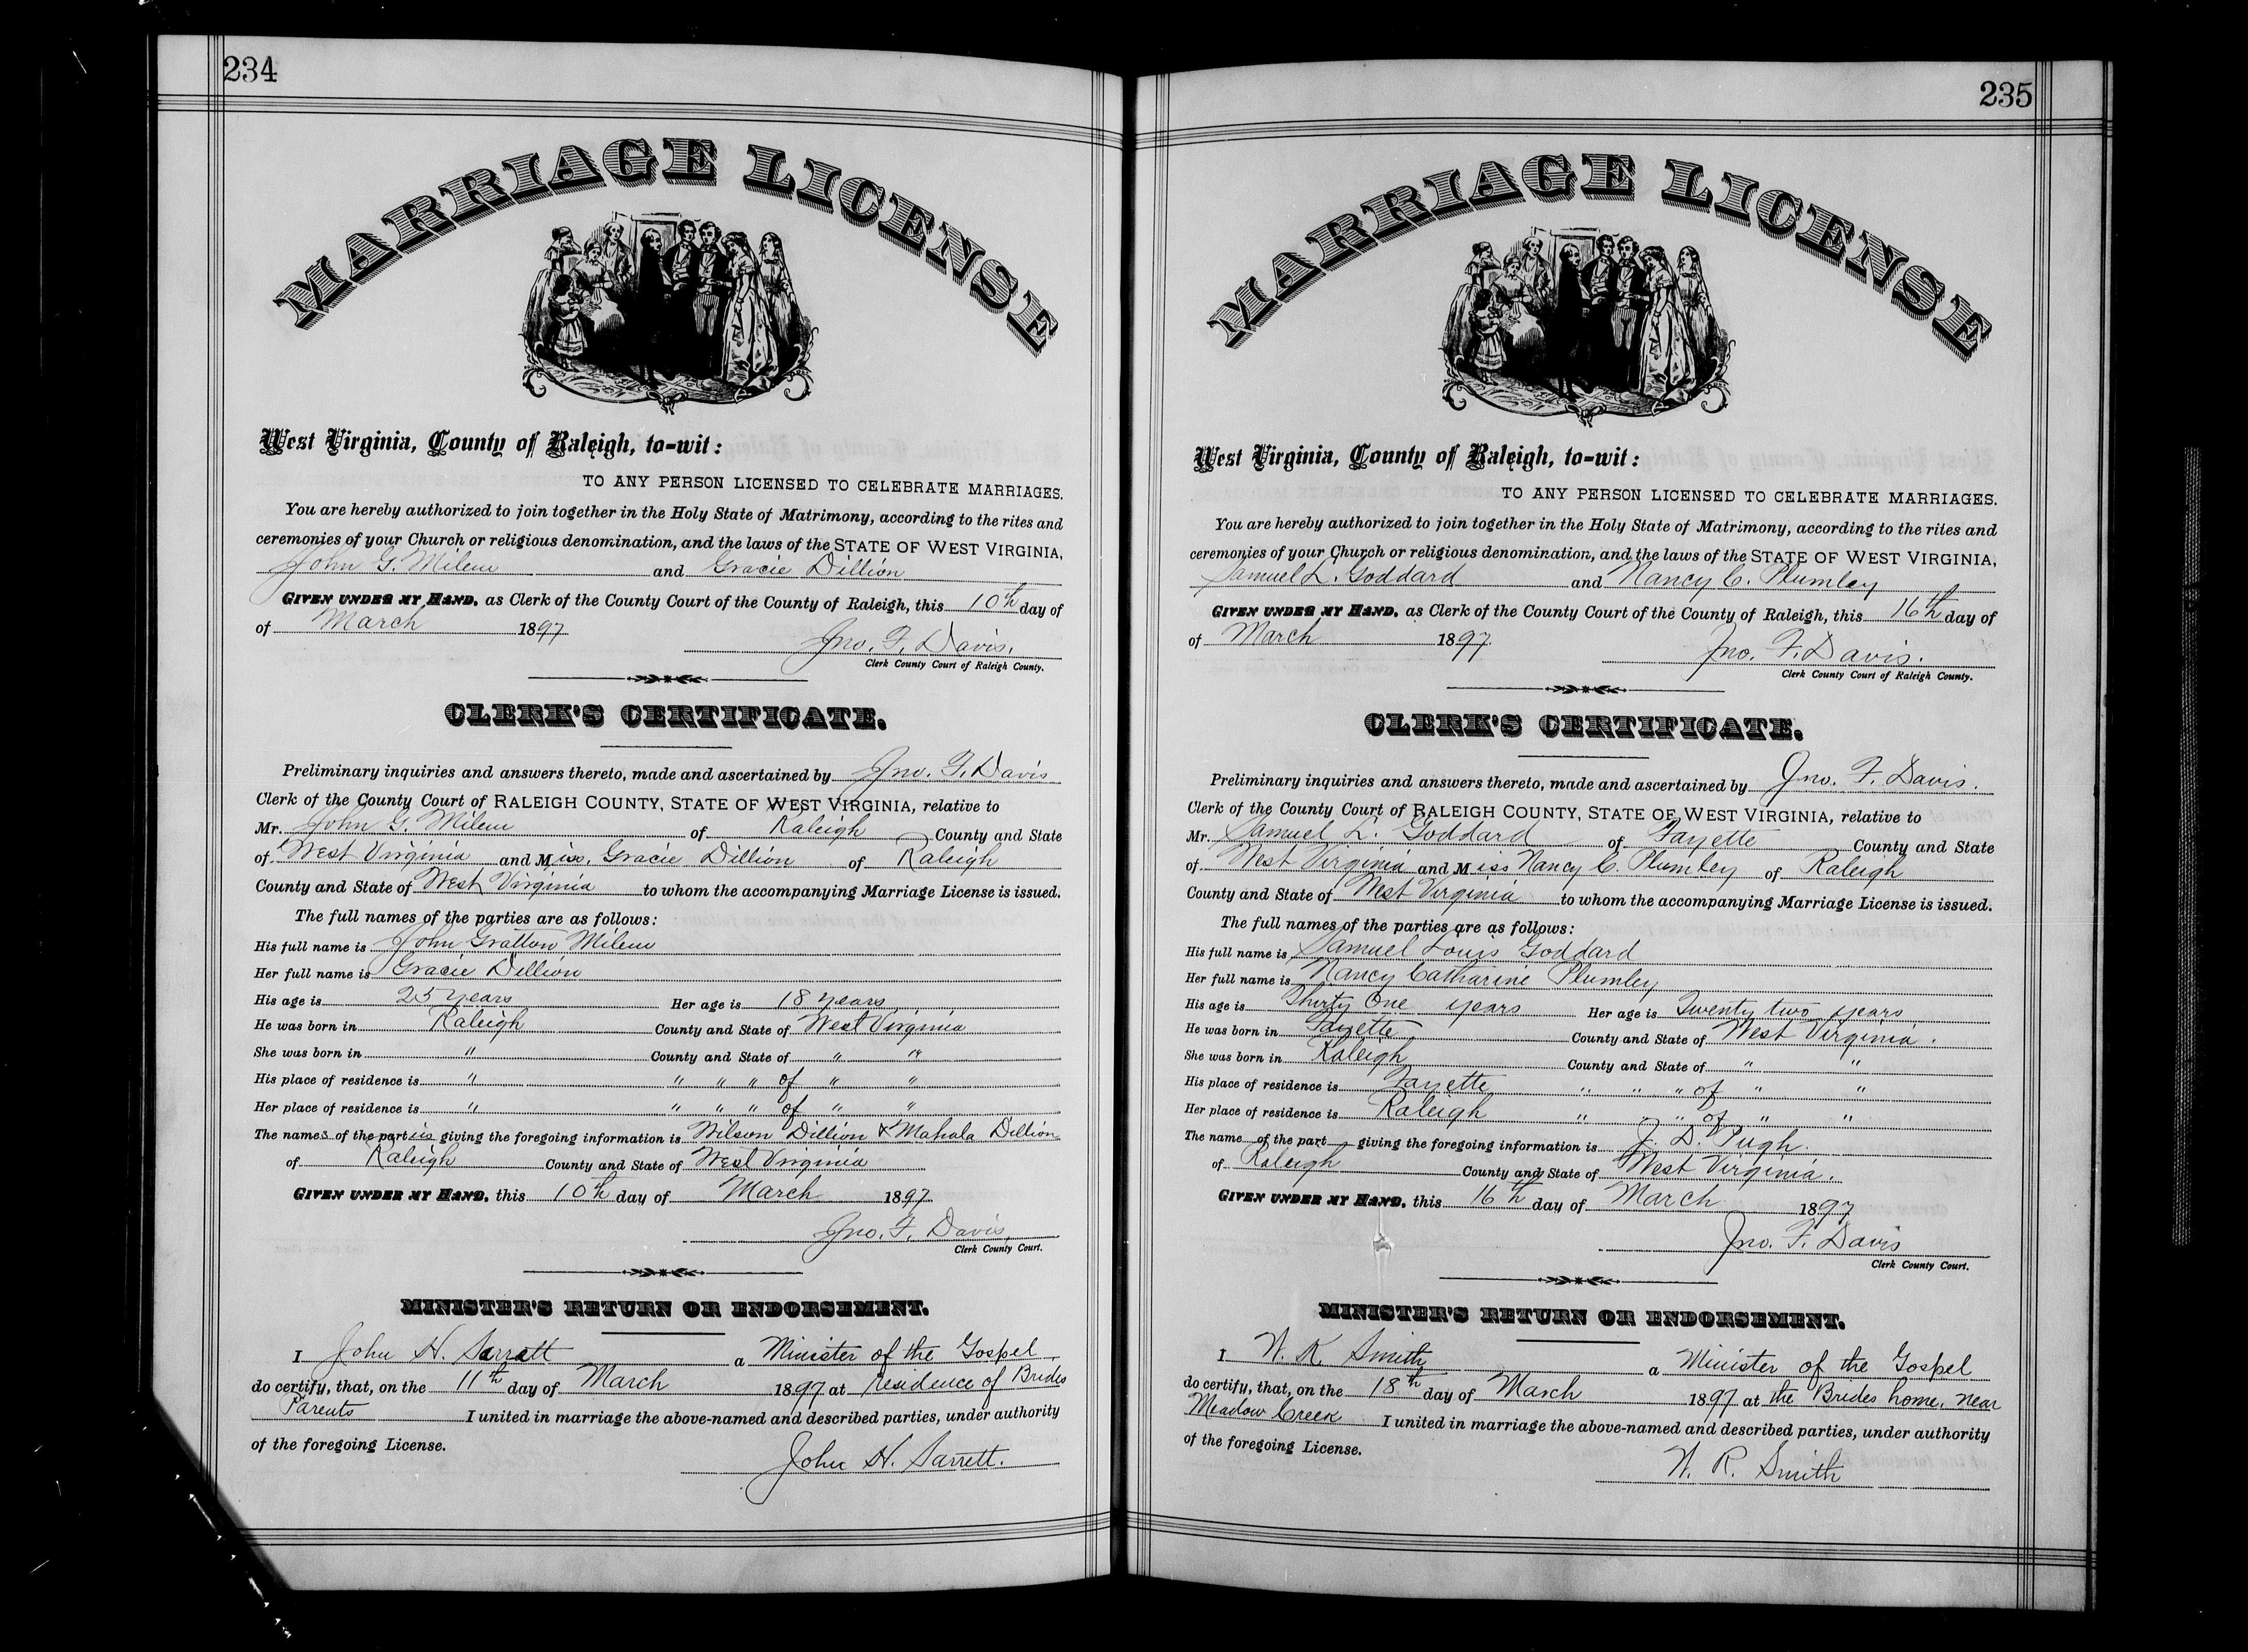 234
MARRIAGE LICENSE
West Virginia, County of Raleigh, to-wit:
TO ANY PERSON LICENSED TO CELEBRATE MARRIAGES.
You are hereby authorized to join together in the Holy State of Matrimony, according to the rites and
ceremonies of your Church or religious denomination, and the laws of the STATE OF WEST VIRGINIA,
John G. Milem and Gracie Dillion
GIVEN UNDER MY HAND, as Clerk of the County Court of the County of Raleigh, this 10th day of
of March 1897
Jno. F. Davis.
Clerk County Court of Raleigh County.
CLERK'S CERTIFICATE.
Preliminary inquiries and answers thereto, made and ascertained by Jno. F. Davis
Clerk of the County Court of RALEIGH COUNTY, STATE OF WEST VIRGINIA, relative to
Mr. John G. Milem of Raleigh County and State
of West Virginia and Miss, Gracie Dillion of Raleigh
County and State of West Virginia to whom the accompanying Marriage License is issued.
The full names of the parties are as follows:
His full name is John Gratton Milem
Her full name is Gracie Dillion
His age is 25 years Her age is 18 years
He was born in Raleigh County and State of West Virginia
She was born in " County and State of " "
His place of residence is " " " " of " "
Her place of residence is " " " " of " "
The names of the parties giving the foregoing information is Wilson Dillion & Mahala Dillion
of Raleigh County and State of West Virginia
GIVEN UNDER MY HAND, this 10th day of March 1897
Jno. F. Davis
Clerk County Court.
MINISTER'S RETURN OR ENDORSEMENT.
I John H. Sarrett a Minister of the Gospel
do certify, that, on the 11th day of March 1897 at residence of Brides
Parents I united in marriage the above-named and described parties, under authority
of the foregoing License.
John H. Sarrett.
235
MARRIAGE LICENSE
West Virginia, County of Raleigh, to-wit:
TO ANY PERSON LICENSED TO CELEBRATE MARRIAGES.
You are hereby authorized to join together in the Holy State of Matrimony, according to the rites and
ceremonies of your Church or religious denomination, and the laws of the STATE OF WEST VIRGINIA,
Samuel L. Goddard and Nancy C. Plumley
GIVEN UNDER MY HAND, as Clerk of the County Court of the County of Raleigh, this 16th day of
of March 1897
Jno. F. Davis.
Clerk County Court of Raleigh County.
CLERK'S CERTIFICATE.
Preliminary inquiries and answers thereto, made and ascertained by Jno. F. Davis.
Clerk of the County Court of RALEIGH COUNTY, STATE OF WEST VIRGINIA, relative to
Mr. Samuel L. Goddard of Fayette County and State
of West Virginia and Miss Nancy C. Plumley of Raleigh
County and State of West Virginia to whom the accompanying Marriage License is issued.
The full names of the parties are as follows:
His full name is Samuel Louis Goddard
Her full name is Nancy Catharine Plumley
His age is Thirty One years Her age is Twenty two years
He was born in Fayette County and State of West Virginia.
She was born in Raleigh County and State of " "
His place of residence is Fayette " " " of " "
Her place of residence is Raleigh " " " of " "
The name of the part giving the foregoing information is J. D. Pugh.
of Raleigh County and State of West Virginia.
GIVEN UNDER MY HAND, this 16th day of March 1897
Jno. F. Davis
Clerk County Court.
MINISTER'S RETURN OR ENDORSEMENT.
I W. R. Smith a Minister of the Gospel
do certify, that, on the 18th day of March 1897 at the Brides home, near
Meadow Creek I united in marriage the above-named and described parties, under authority
of the foregoing License.
W. R. Smith